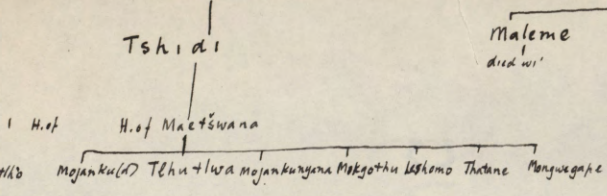 Tshidi
Maleme
died wi'
H.of H.of Maetšwana
Mojanku(a) Tlhutlwa Mojankunyana Mokgothu Leshomo Thatane Mongwagape